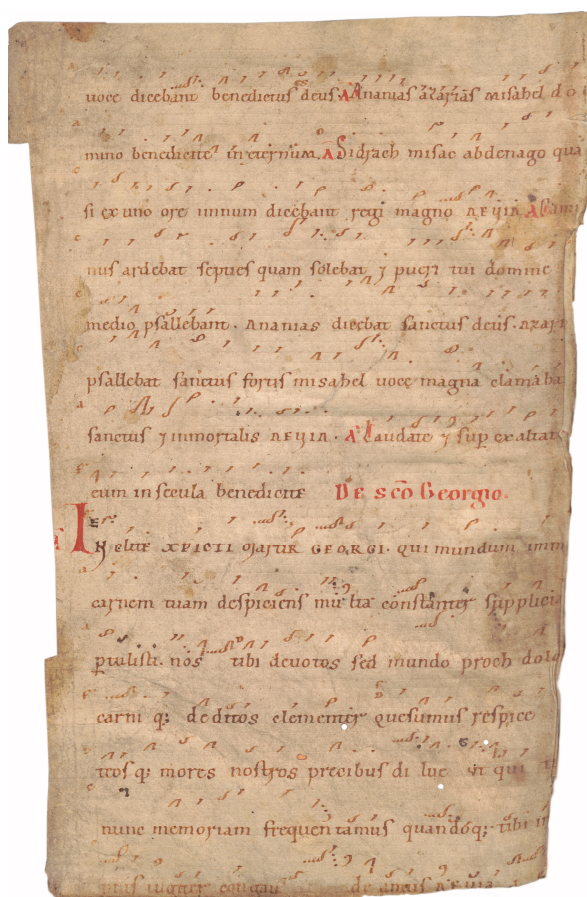 uoce dicebant benedictus deus. A Ananias azarias misahel do
mino benedicite in eternum. A Sidrach misac abdenago qua
si ex uno ore imnum dicebant regi magno AEVIA. A Cami
nus ardebat septies quam solebat ⁊ pueri tui domine
medio psallebant. Ananias dicebat sanctus deus. azari
psallebat sanctus fortis misahel uoce magna clamaba
sanctus ⁊ immortalis AEVIA. A Laudate ⁊ sup exaltate
eum in scecula benedicite De sco Georgio.
Inclite XPICTI martir GEORGI. qui mundum imm
carnem tuam despiciens multa constanter supplicia
ptulisti. nos tibi devotos sed mundo proch dolo
carni q; deditos clementer quesumus respice
tros q; mores nostros precibus dilue Vt qui
nunc memoriam frequentamus quandoq; tibi in
de AEVIA